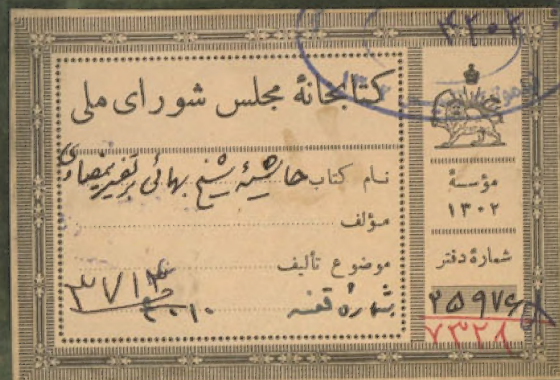 ۴۲۰۲
کتابخانهٔ مجلس شورای ملی
نام کتاب حاشیهٔ شیخ بهائی بر تفسیر بیضاوی
مؤلف
موضوع تألیف
شمارهٔ قفسه
۳۷۱۴
مؤسسهٔ
۱۳۰۲
شمارهٔ دفتر
۲۵۹۷۶
۷۳۲۸